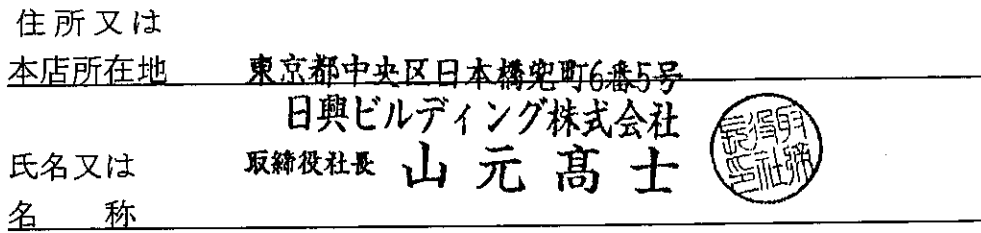 住所又は
本店所在地 東京都中央区日本橋兜町6番5号
日興ビルディング株式会社
氏名又は 取締役社長 山元高士
名 称
取締役社長印